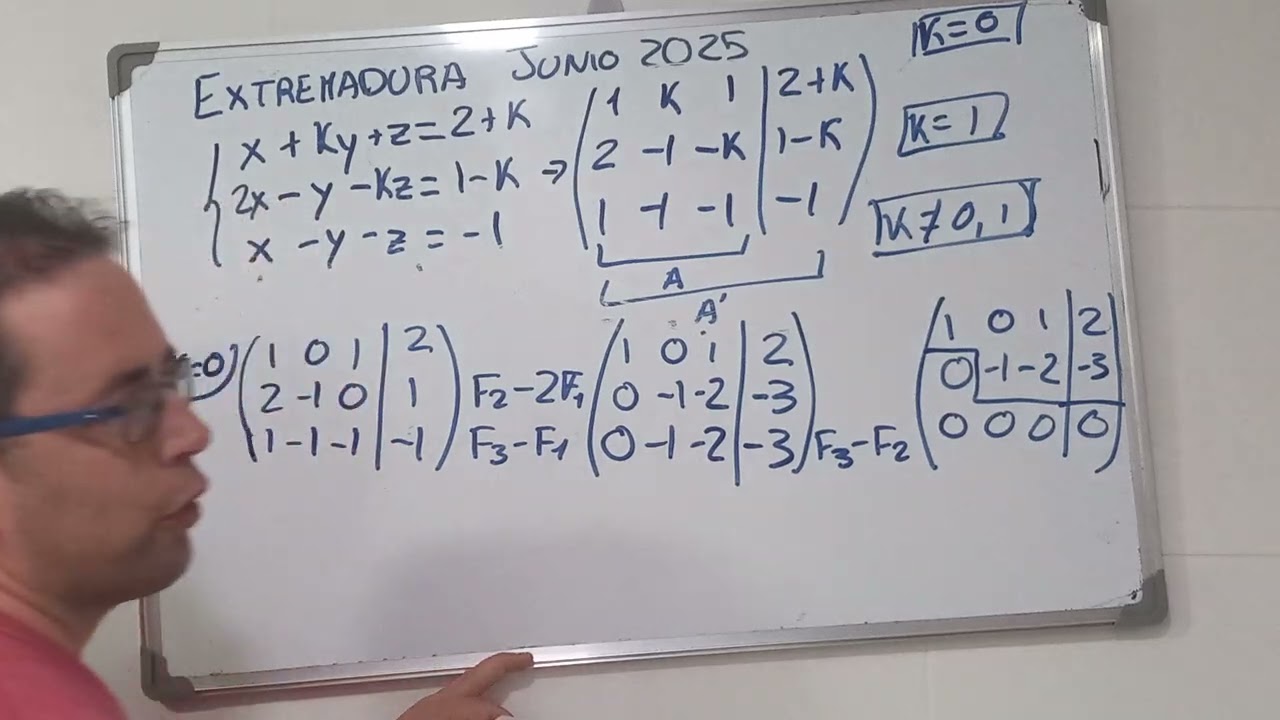 EXTREMADURA JUNIO 2025
K=0
x + Ky + z = 2+K
2x - y - Kz = 1-K →
x - y - z = -1
1 K 1 | 2+K
2 -1 -K | 1-K
1 -1 -1 | -1
A
A'
K=1
K≠0, 1
=0)
1 0 1 | 2
2 -1 0 | 1
1 -1 -1 | -1
F₂-2F₁
F₃-F₁
1 0 1 | 2
0 -1 -2 | -3
0 -1 -2 | -3
F₃-F₂
1 0 1 | 2
0 -1 -2 | -3
0 0 0 | 0